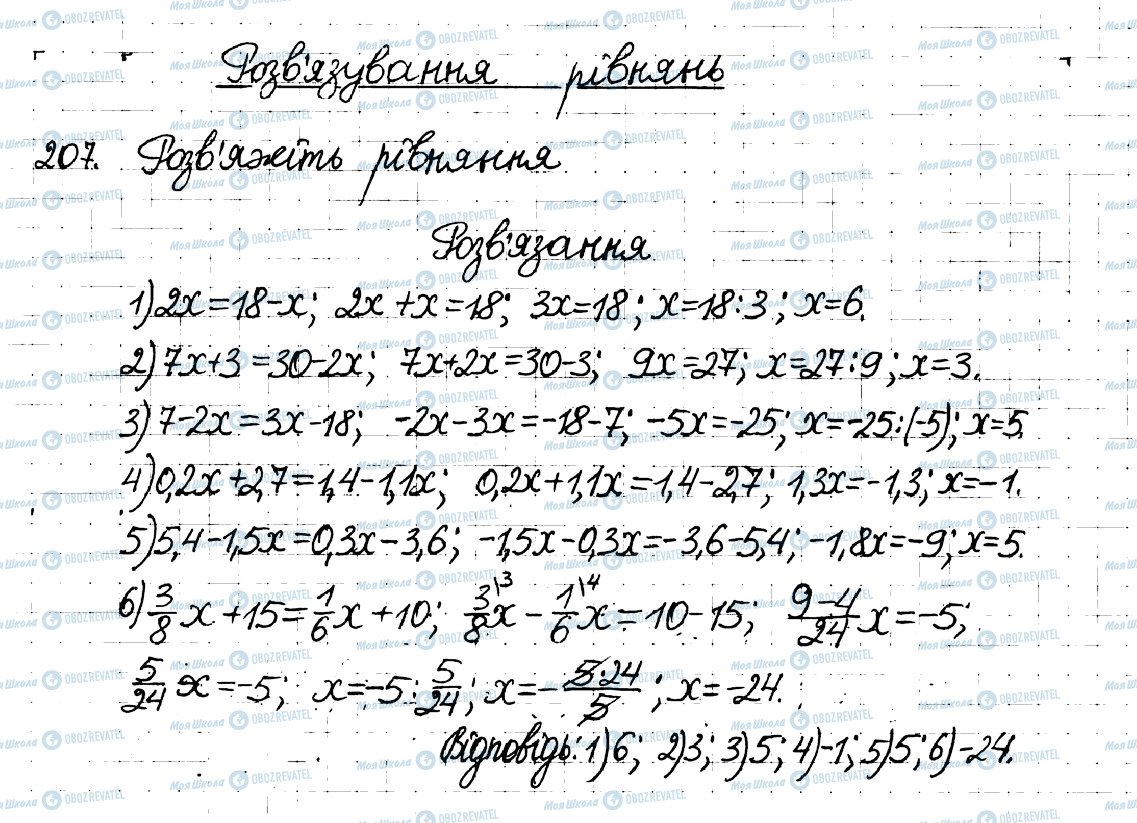 Розв'язування рівнянь
207. Розв'яжіть рівняння
Розв'язання
1) 2x=18-x; 2x+x=18; 3x=18; x=18:3; x=6.
2) 7x+3=30-2x; 7x+2x=30-3; 9x=27; x=27:9; x=3.
3) 7-2x=3x-18; -2x-3x=-18-7; -5x=-25; x=-25:(-5); x=5.
4) 0,2x+2,7=1,4-1,1x; 0,2x+1,1x=1,4-2,7; 1,3x=-1,3; x=-1.
5) 5,4-1,5x=0,3x-3,6; -1,5x-0,3x=-3,6-5,4; -1,8x=-9; x=5.
6) 3/8 x+15=1/6 x+10; 3\3/8 x - 1\4/6 x=10-15; 9-4/24 x=-5;
5/24 x=-5; x=-5:5/24; x=-5·24/5; x=-24.
Відповідь: 1) 6; 2) 3; 3) 5; 4) -1; 5) 5; 6) -24.
МояШкола OBOZREVATEL